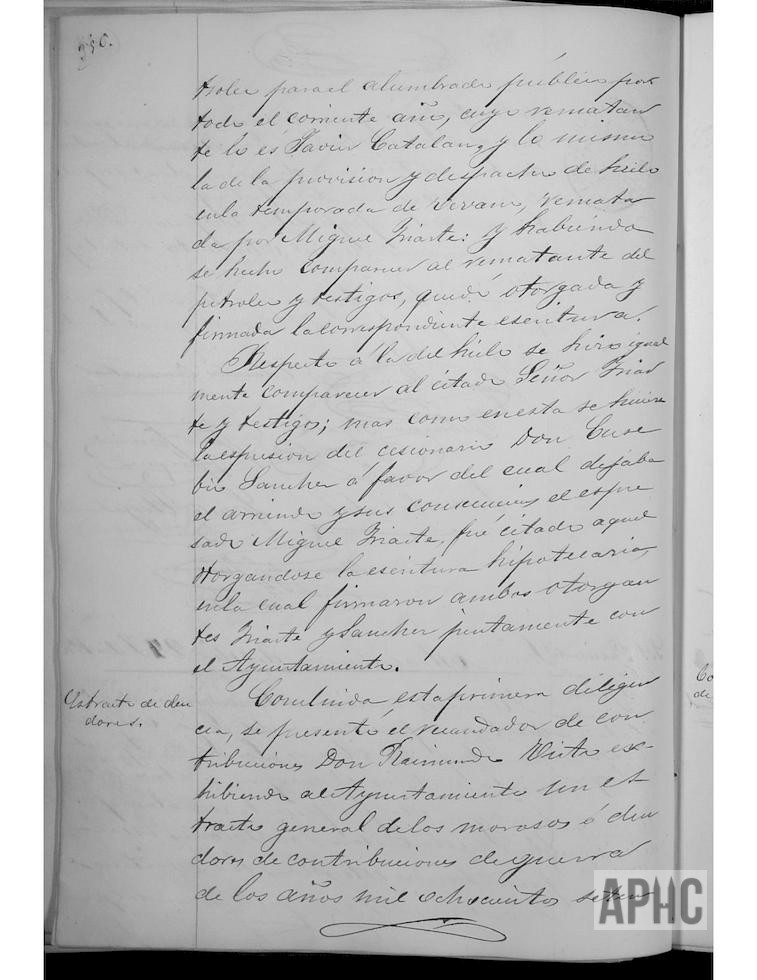 250.
troleo para el alumbrado público por
todo el corriente año, cuyo rematan
te lo és Javier Catalan, y lo mismo
la de la provision y despacho de hielo
en la temporada de verano, remata
da por Miguel Iriarte: y habiendo
se hecho comparecer al rematante del
petroleo y testigos, quedó otorgada y
firmada la correspondiente escritura.
Respecto á la del hielo se hizo igual
mente comparecer al citado Señor Iriar
te y testigos; mas como en esta se hiciera
la espresion del cesionario Don Euse
bio Sanchez á favor del cual dejaba
el arriendo y sus consecuencias el espre
sado Miguel Iriarte, fué citado aquel
otorgandose la escritura hipotecaria,
en la cual firmaron ambos otorgan
tes Iriarte y Sanchez juntamente con
el Ayuntamiento.
Estracto de deu
dores.
Concluida esta primera diligen
cia, se presentó el recaudador de con
tribuciones Don Raimundo ex-
hibiendo al Ayuntamiento un es
tracto general de los morosos ó deu
dores de contribuciones de guerra
de los años mil ochocientos seten
Co
de
APHC